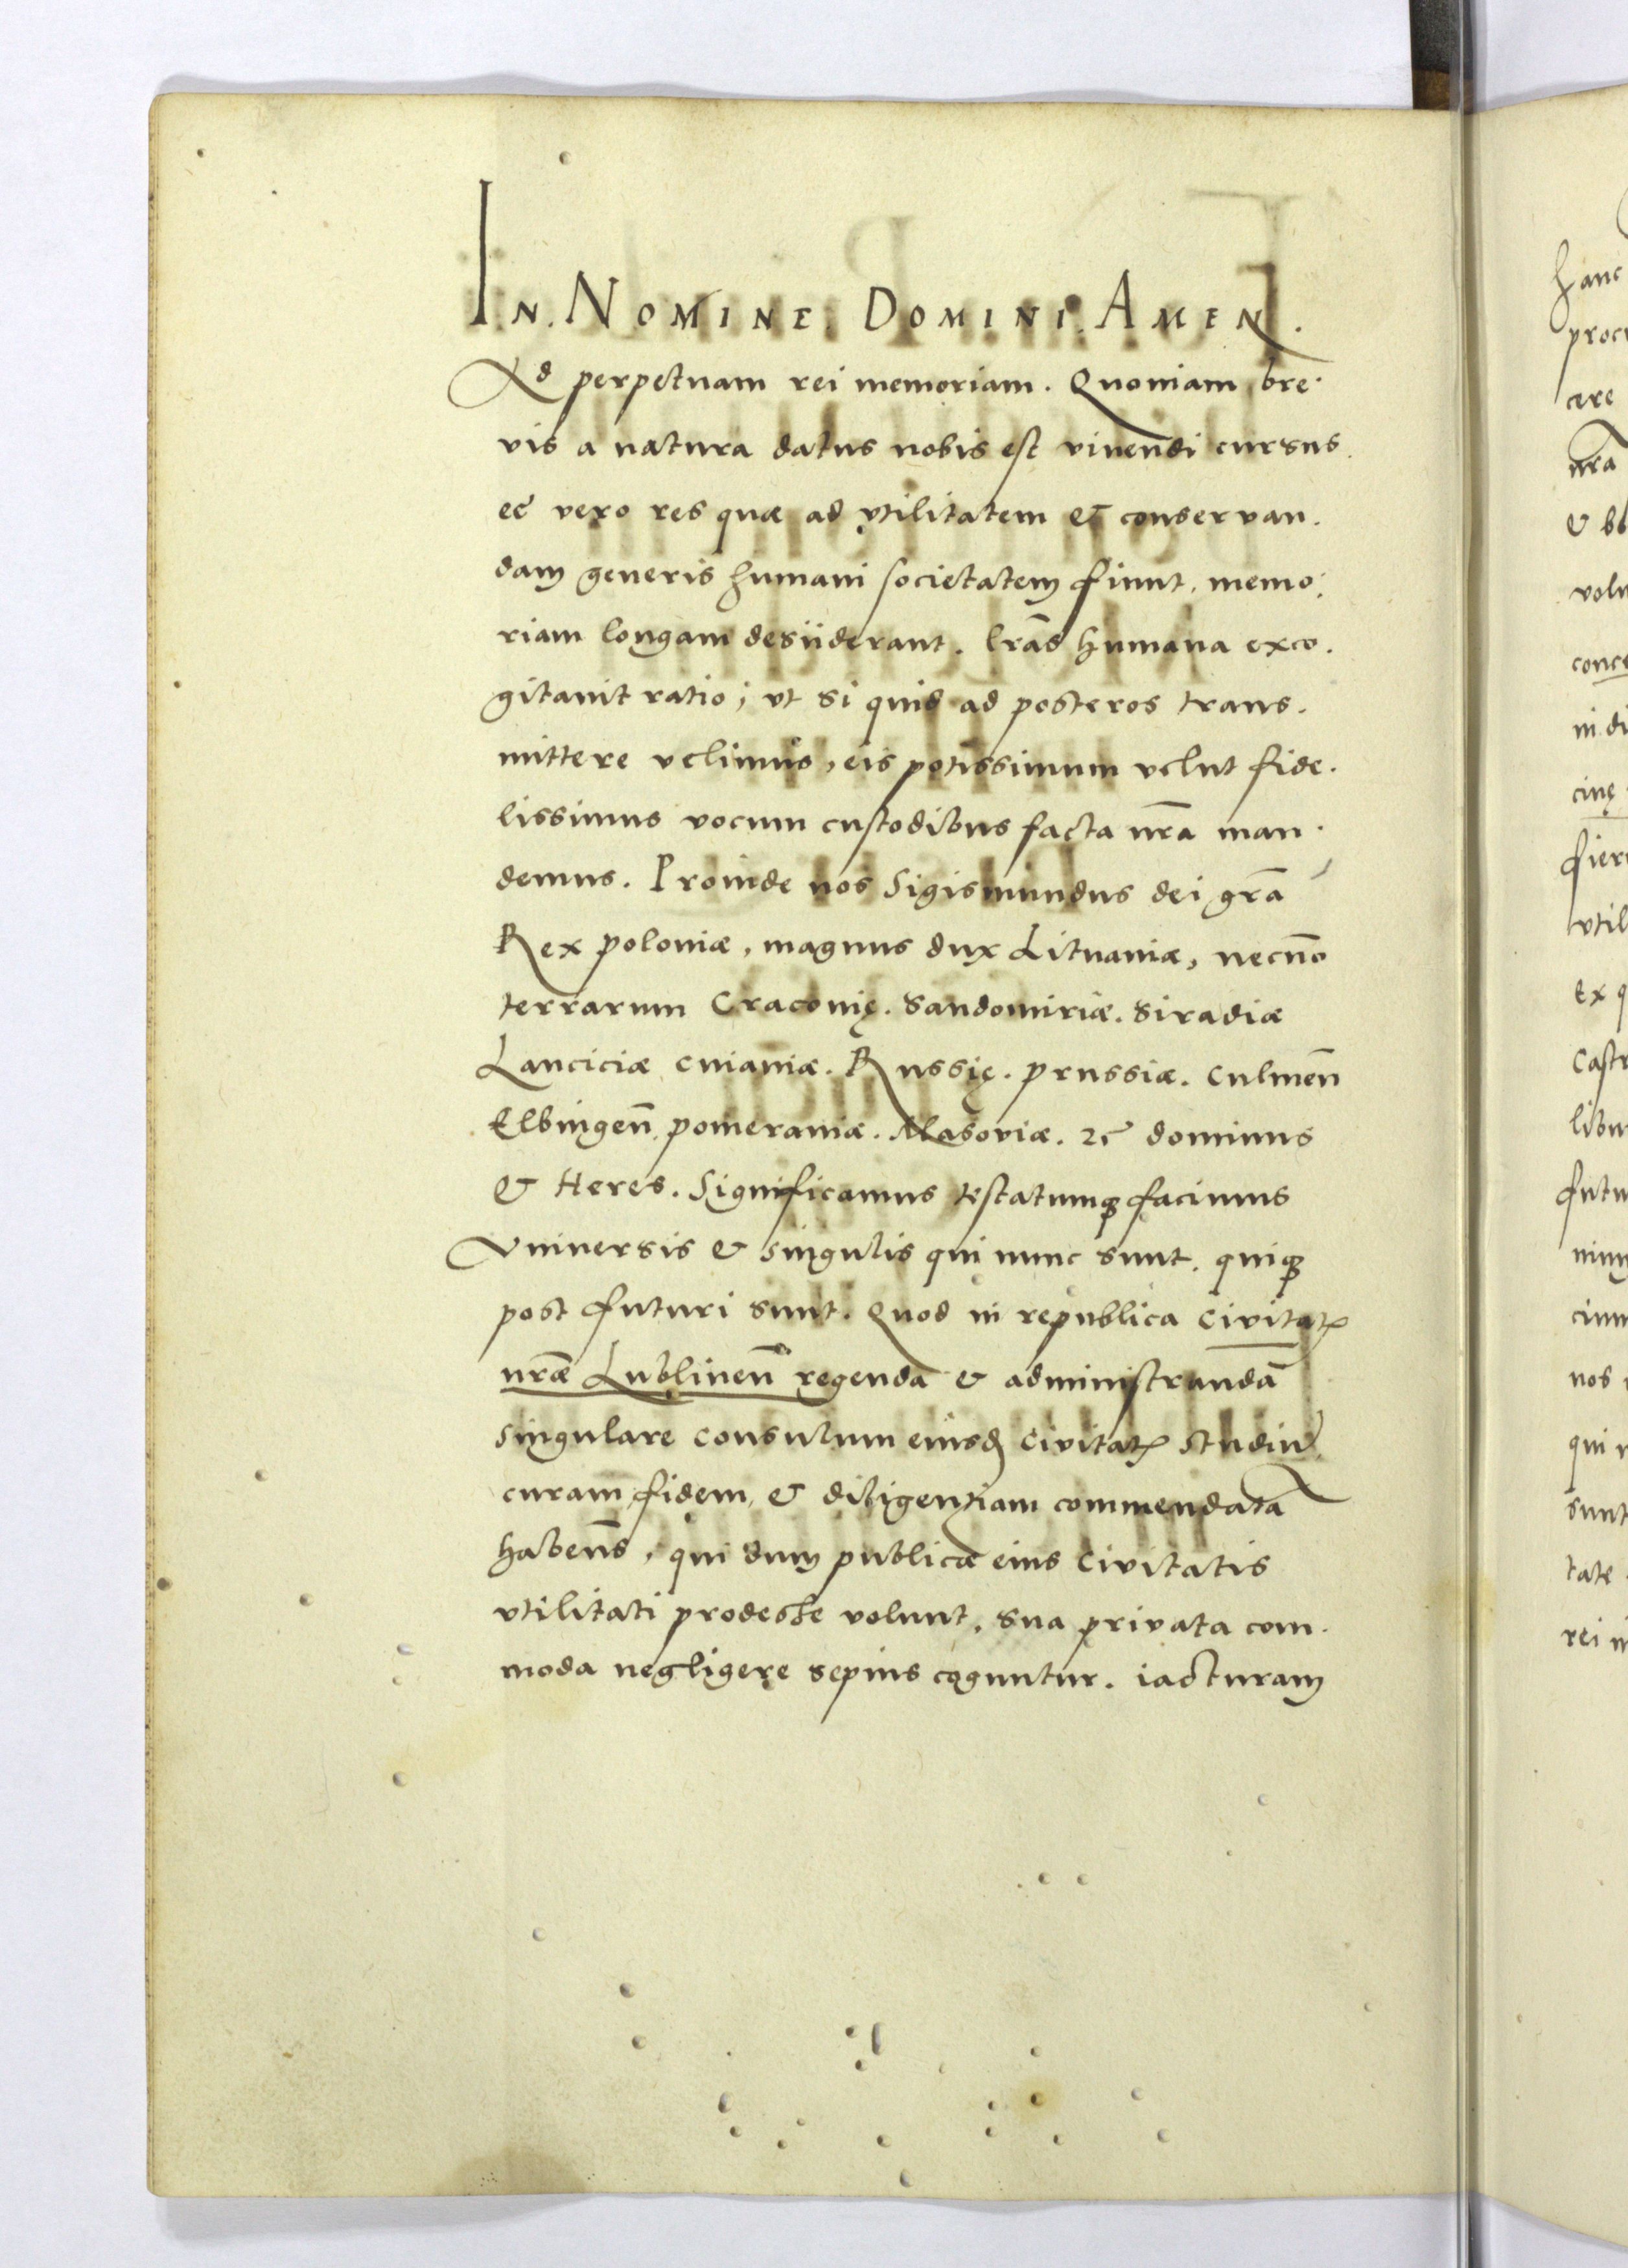 IN. NOMINE. DOMINI. AMEN.
Ad perpetuam rei memoriam. Quoniam bre-
vis a natura datus nobis est vivendi cursus.
eē vero res quæ ad vtilitatem & conservan-
dam generis humani societatem fiunt, memo-
riam longam desiiderant. lrās humana exco-
gitauit ratio; vt si quid ad posteros trans-
mittere velimus, eis potissimum velut fide-
lissimus vocum custodibus facta nrā man-
demus. Proinde nos Sigismundus dei grā
Rex poloniæ, magnus dux Lituaniæ, necnō
terrarum Cracovię. Sandomiriæ. Siradiæ
Lanciciæ Cuiaviæ. Russię. prussiæ. Culmeñ
Elbingeñ. pomeraniæ. Masoviæ. zc̄ dominus
& Heres. Significamus testatumqꝫ facimus
Vniversis & singulis qui nunc sunt. quiqꝫ
post futuri sunt. Quod in republica Civitatꝭ
nrǣ Lublineñ regenda & administrandā
singulare consulum eiusdꝫ Civitatꝭ studiū
curam, fidem, & diligentiam commendatā
habens̄, qui dum publicæ eius Civitatis
vtilitati prodesse volunt, sua privata com-
moda negligere sepius coguntur. iacturam
hanc
cere
nrā
volu
conce
fier
vtil
Ex q
Castr
futu
nos
qui
sunt
tate
rei